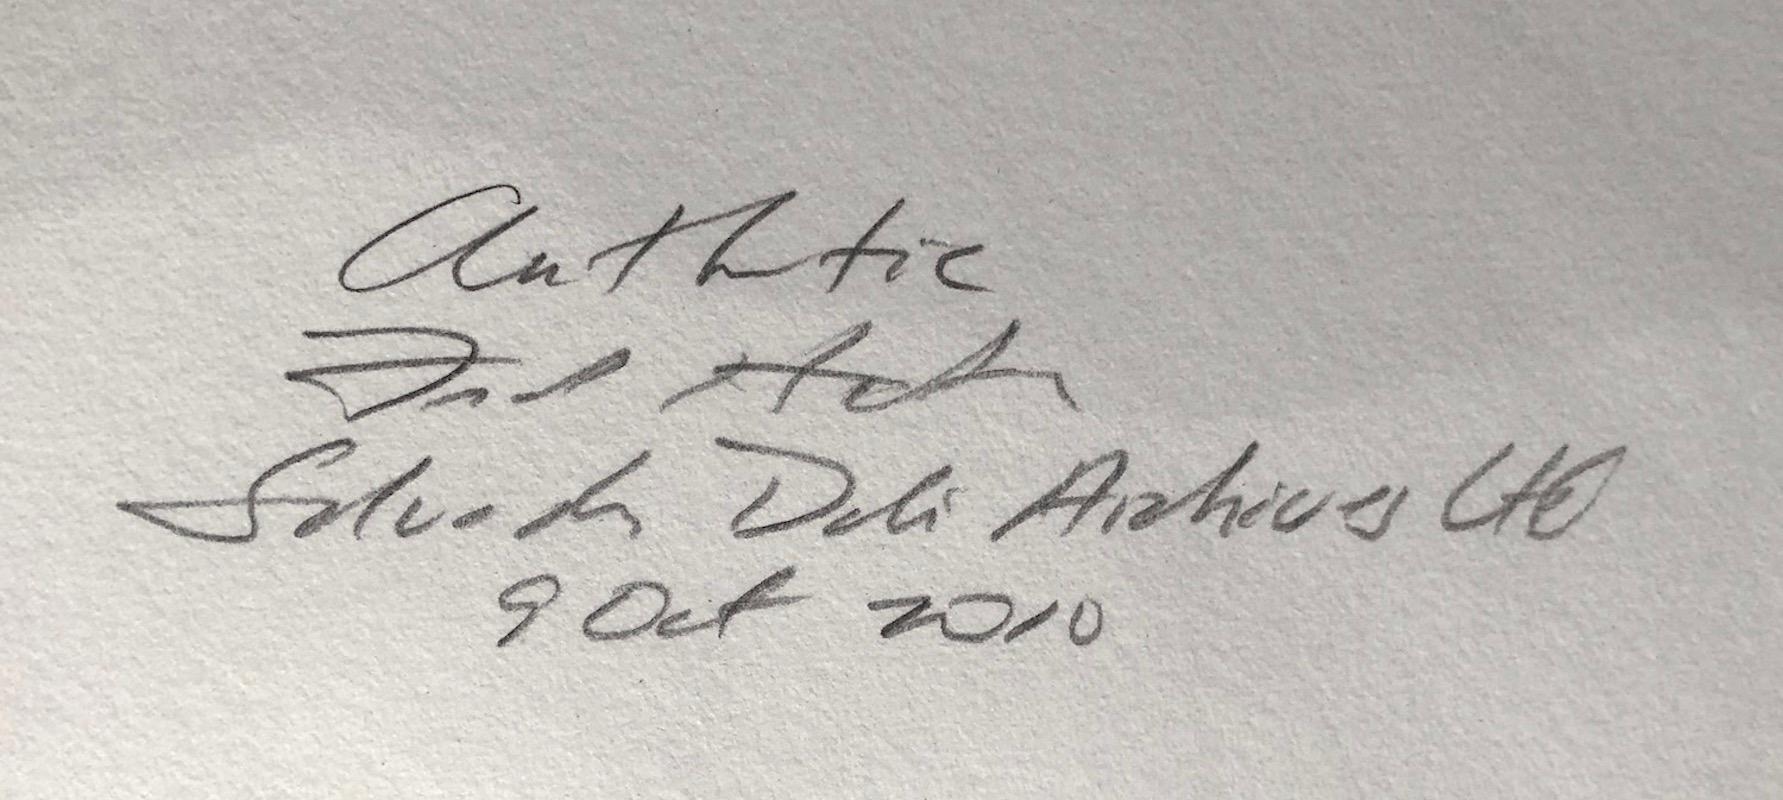 Authentic
Salvador Dali Archives Ltd
9 Oct 2010